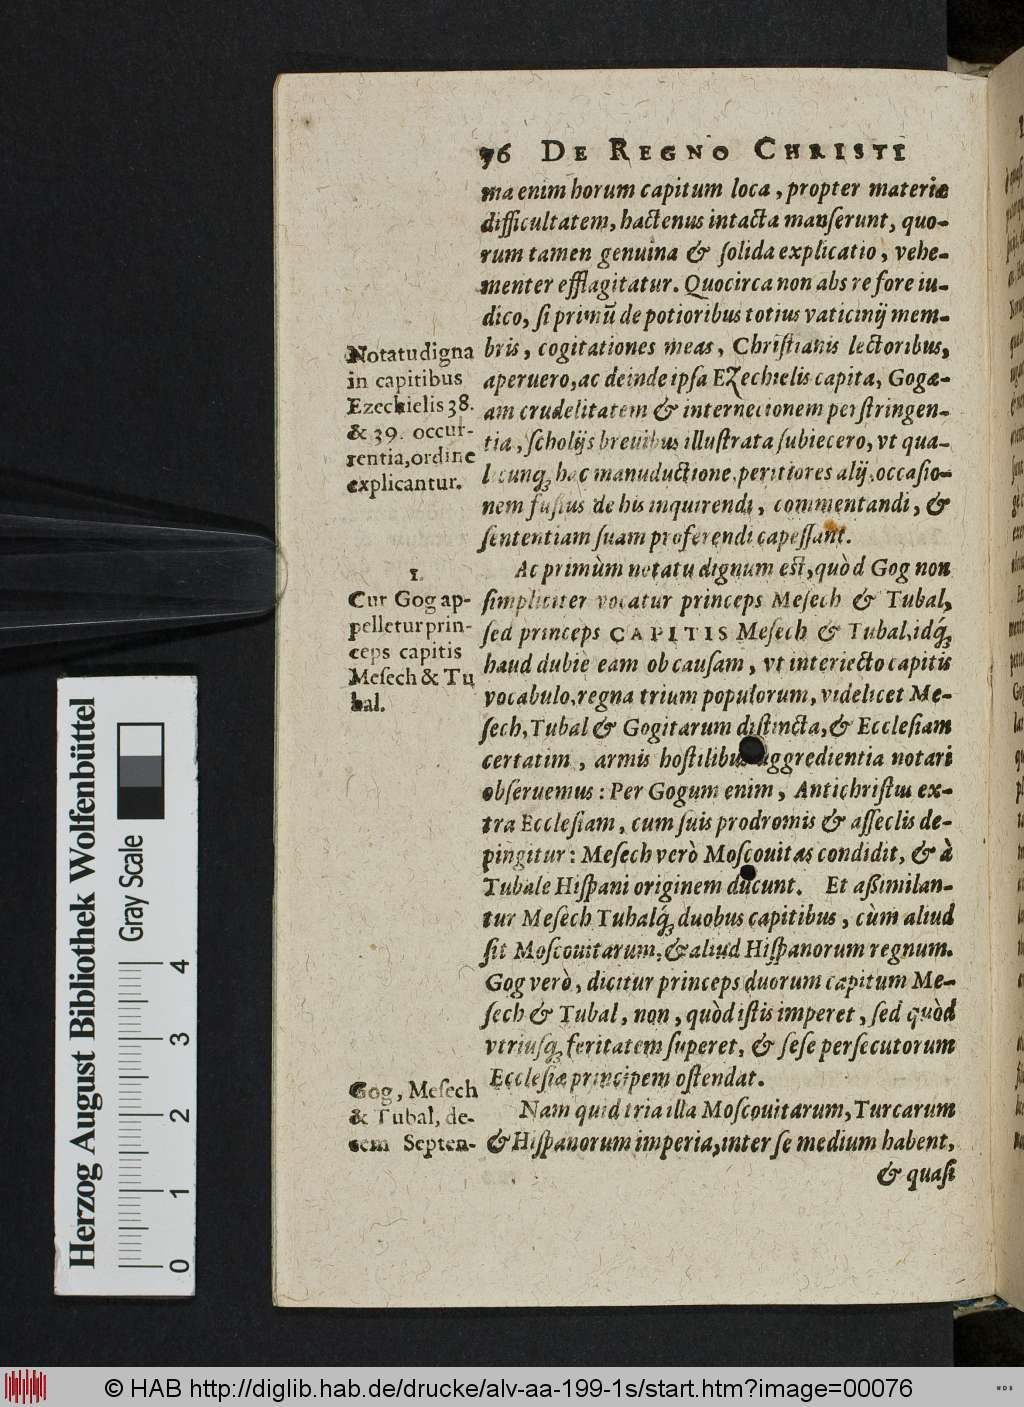 76 DE REGNO CHRISTI
ma enim horum capitum loca, propter materiæ
difficultatem, hactenus intacta manſerunt, quo-
rum tamen genuina & ſolida explicatio, vehe-
menter efflagitatur. Quocirca non abs re fore iu-
dico, ſi primū de potioribus totius vaticinij mem-
bris, cogitationes meas, Chriſtianis lectoribus,
aperuero, ac deinde ipſa Ezechielis capita, Gogæ-
am crudelitatem & internecionem perſtringen-
tia, ſcholijs breuibus illuſtrata ſubiecero, vt qua-
licunq́ꝫ hac manuductione, peritiores alij, occaſio-
nem fuſius de his inquirendi, commentandi, &
ſententiam ſuam proferendi capeſſant.
Notatu digna
in capitibus
Ezechielis 38.
& 39. occur-
rentia, ordine
explicantur.
Ac primùm notatu dignum eſt, quòd Gog non
ſimpliciter vocatur princeps Meſech & Tubal,
ſed princeps CAPITIS Meſech & Tubal, idq́ꝫ
haud dubie eam ob cauſam, vt interiecto capitis
vocabulo, regna trium populorum, videlicet Me-
ſech, Tubal & Gogitarum diſtincta, & Eccleſiam
certatim, armis hoſtilibus aggredientia notari
obſeruemus: Per Gogum enim, Antichriſtus ex-
tra Eccleſiam, cum ſuis prodromis & aſſeclis de-
pingitur: Meſech verò Moſcouitas condidit, & à
Tubale Hiſpani originem ducunt. Et aßimilan-
tur Meſech Tubalq́ꝫ duobus capitibus, cùm aliud
ſit Moſcouitarum, & aliud Hiſpanorum regnum.
Gog verò, dicitur princeps duorum capitum Me-
ſech & Tubal, non, quòd iſtis imperet, ſed quòd
vtriuſqꝫ feritatem ſuperet, & ſeſe perſecutorum
Eccleſiæ principem oſtendat.
1.
Cur Gog ap-
pelletur prin-
ceps capitis
Meſech & Tu
bal.
Nam quid tria illa Moſcouitarum, Turcarum
& Hiſpanorum imperia, inter ſe medium habent,
& quaſi
Gog, Meſech
& Tubal, de-
cem Septen-
Herzog August Bibliothek Wolfenbüttel
Gray Scale
0 1 2 3 4
© HAB http://diglib.hab.de/drucke/alv-aa-199-1s/start.htm?image=00076